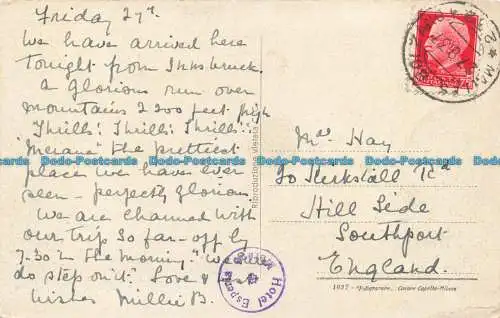 Friday 27th.
We have arrived here
tonight from Innsbruck.
a glorious run over
mountains 2200 feet high
Thrills: Thrills: Thrills:
"Merano" the prettiest
place we have ever
seen – perfectly glorious
We are charmed with
our trip so far – off by
7-30 in the morning. "We
do step on it". Love &
wishes Millie B.
Mrs Hay
70 Kirkstall Rd
Hill Side
Southport
England.
Hotel Esperia
1037
Riproduzione vietata
Cesare Capello-Milano
Dodo-Postcards Dodo-Postcards Dodo-Postcards Dodo-Postcards